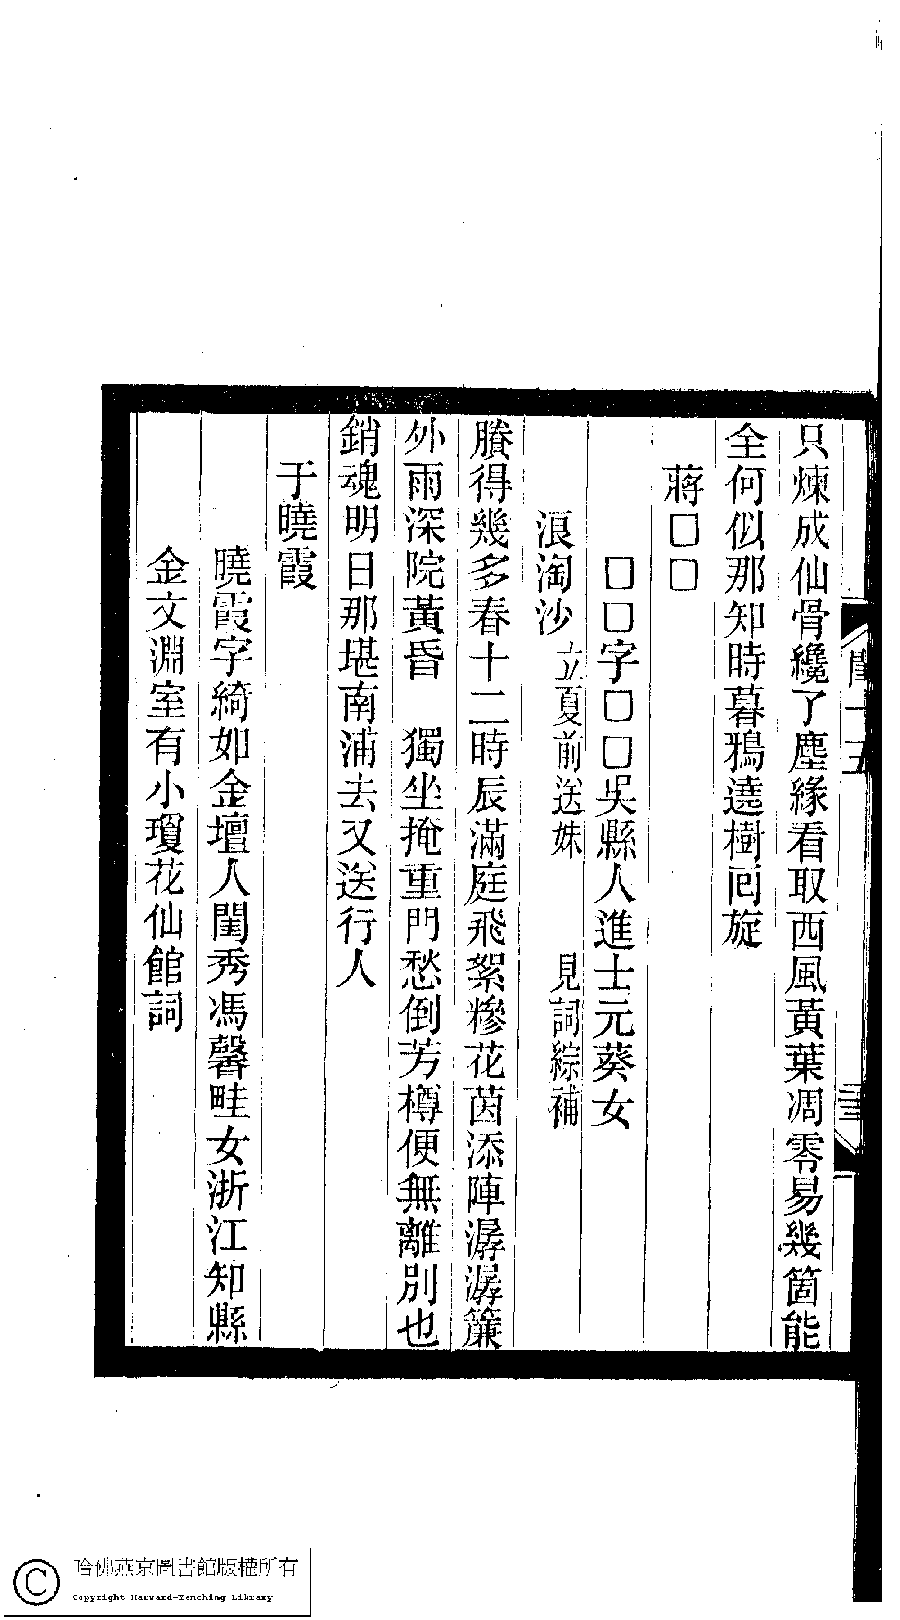 只煉成仙骨纔了塵緣看取西風黃葉凋零易幾箇能
全何似那知時暮鴉遶樹囘旋
蔣□□
□□字□□吳縣人進士元葵女
浪淘沙 立夏前送妹 見詞綜補
賸得幾多春十二時辰滿庭飛絮糝花茵添陣潺潺簾
外雨深院黃昏 獨坐掩重門愁倒芳樽便無離別也
銷魂明日那堪南浦去又送行人
于曉霞
曉霞字綺如金壇人閨秀馮馨畦女浙江知縣
金文淵室有小瓊花仙館詞
哈佛燕京圖書館版權所有
Copyright Harvard-Yenching Library